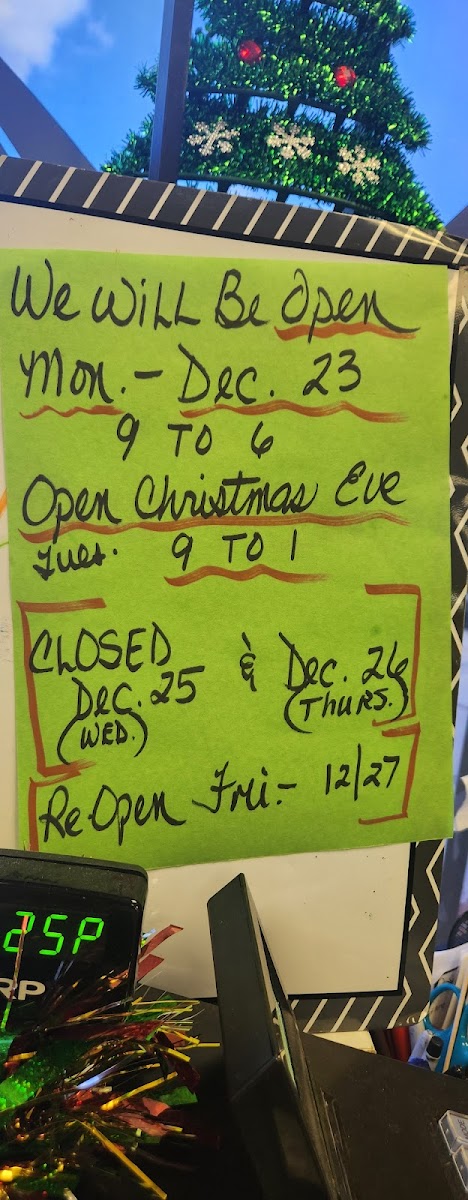 We Will Be Open
Mon. - Dec. 23
9 TO 6
Open Christmas Eve
Tues. 9 TO 1
CLOSED & Dec. 26
Dec. 25 (THURS.)
(WED.)
Re-Open Fri. - 12/27
25P
RP